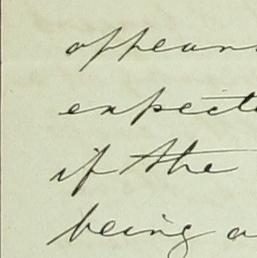 appears
expecte
if the
being a